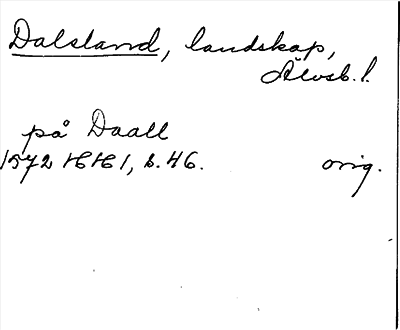 Dalsland, landskap,
Älvsb. l.
på Daall
1572 HH 1, s. 46. orig.